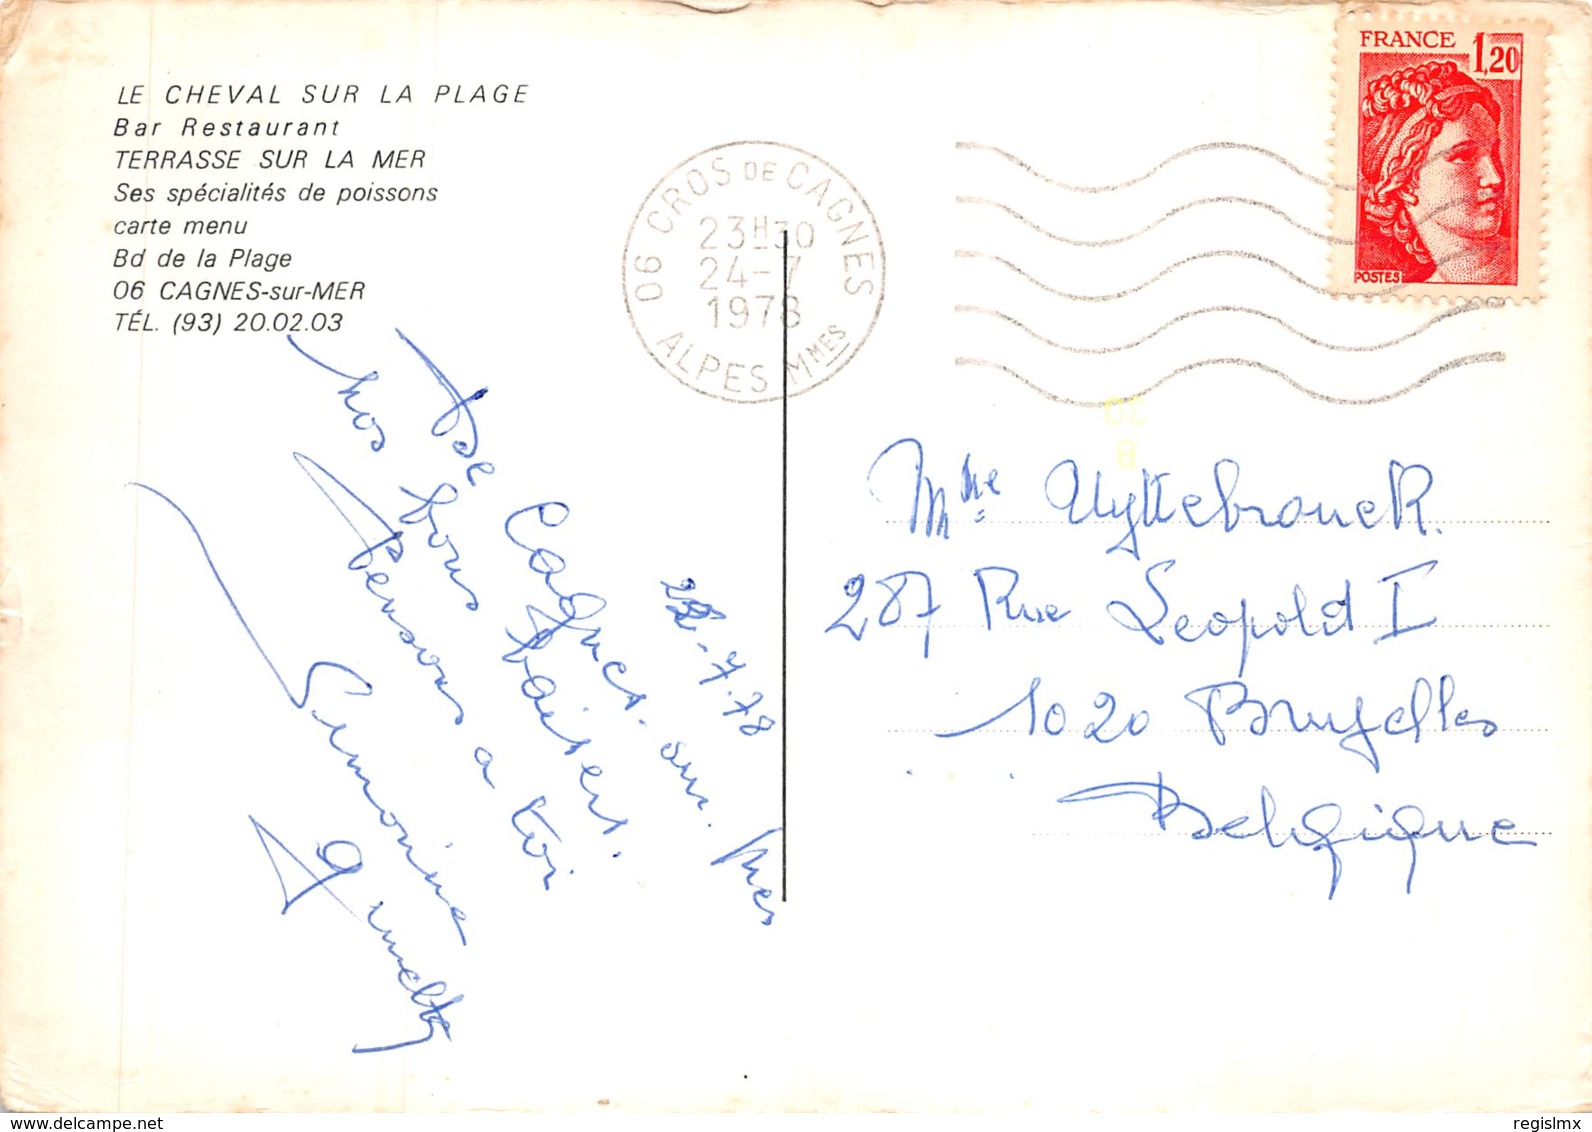 LE CHEVAL SUR LA PLAGE
Bar Restaurant
TERRASSE SUR LA MER
Ses spécialités de poissons
carte menu
Bd de la Plage
06 CAGNES-sur-MER
TÉL. (93) 20.02.03
06 CROS DE CAGNES
23H30
24-7
1978
ALPES MMES
FRANCE 1,20
POSTES
30
B
22-7.78
De Cagnes. sur. Mer
nos bons baisers.
Pensons a toi
Simonine
Mme Uyttebrouck.
287 Rue Leopold I
1020 Bruxelles
Belgique
delcampe.net
regislmx